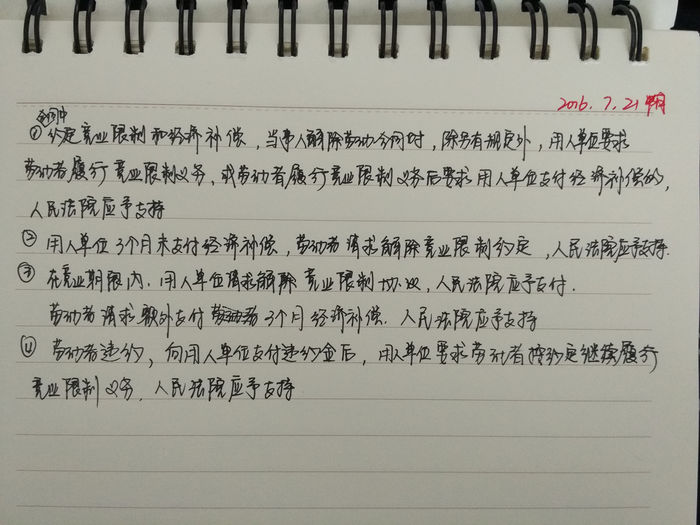 2016.7.21
合同中
①约定竞业限制和经济补偿，当事人解除劳动合同时，除另有规定外，用人单位要求
劳动者履行竞业限制义务，或劳动者履行竞业限制义务后要求用人单位支付经济补偿的，
人民法院应予支持
②用人单位3个月未支付经济补偿，劳动者请求解除竞业限制约定，人民法院应予支持.
③在竞业期限内，用人单位请求解除竞业限制协议，人民法院应予支付.
劳动者请求额外支付劳动者3个月经济补偿．人民法院应予支持
④劳动者违约，向用人单位支付违约金后，用人单位要求劳动者按约定继续履行
竞业限制义务．人民法院应予支持